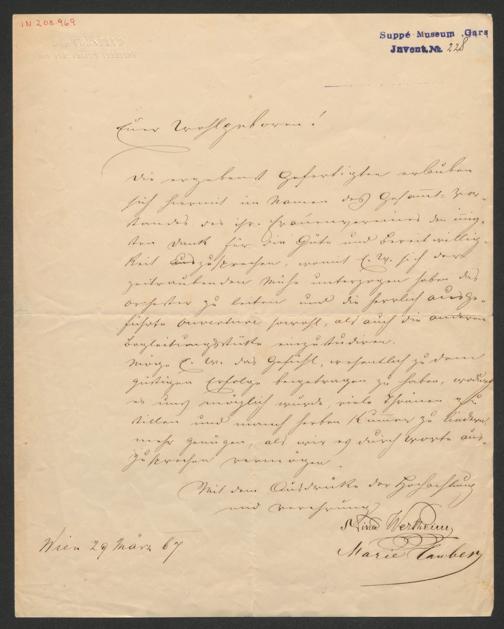 IN 208.969
Suppé Museum Gars
Invent.No 228
Euer Wohlgeboren!
Die ergebenst Gefertigten erlauben
sich hiermit im Namen des Gesammt-Vor-
standes des isr. Frauenvereines den innig-
sten Dank für die Güte und Bereitwillig-
keit auszusprechen, womit E. W. sich der
zeitraubenden Mühe unterzogen haben das
Orchester zu leiten und die herrlich ausge-
führte Ouverture sowohl, als auch die anderen
Begleitungsstücke einzustudieren.
Möge E. W. das Gefühl, wesentlich zu dem
günstigen Erfolge beigetragen zu haben, wodurch
es uns möglich wurde, viele Thränen zu
stillen und manch herben Kummer zu lindern
mehr genügen, als wir es durch Worte aus-
zusprechen vermögen.
Mit dem Ausdrucke der Hochachtung
und Verehrung
Nina Wertheim
Marie Tauber
Wien 29 März 67